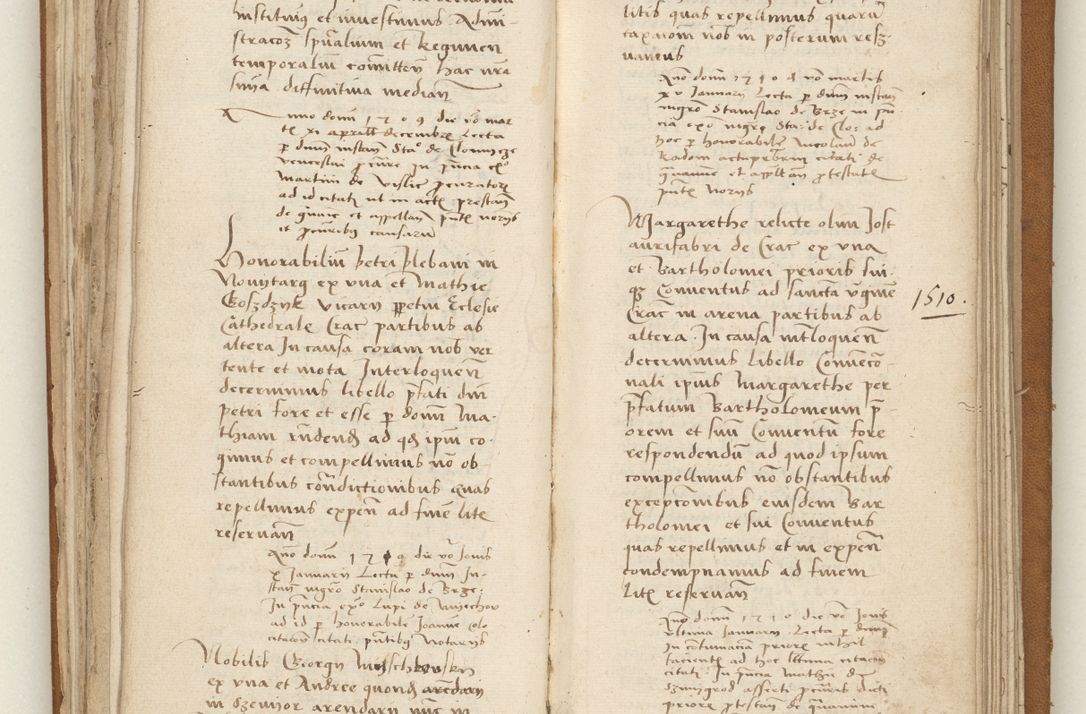 instituimus et investimus Admi-
stracoz spualium et Regimen
temporalium comitten hac nra
snia diffinitiva median
Anno domi 1509 die vo mar
te xi aprilis decembr Lecta
p dnum instan Sta. de Clomicze
in pncia ex
Martini de Vislic pcurator
ad id citati ut in actis prestan
de gnaie et appellan pnte norijs
et pcuribus causaru
Honorabiliu petri plebani in
Novytarg ex vna et Mathie
Goszdzyk vicarij ppetui Eclesie
Cathedrale Crac partibus ab
altera In causa coram nob ver
tente et mota Interloquen
decernimus libello pfati dni
petri fore et esse p domi Ma-
thiam rndend ad qd ipm co-
gimus et compellimus no ob
stantibus condictionibus quas
repellimus expen ad fine lite
reservan
Ano domi 1510 die vo Jovis
x Januarij Lecta p dnum In-
stan mgro Stanislao de Brze.
In pncia exo Lupi de Myechov
ad id p honorabile Joanne Clo
citacon citati pntibus Notarijs
Nobilis Georgy Mysschkowsky
ex vna et Andree quond arendarij
in Szewior arendarij nuc in
litis quas repellimus quaru
taxaiom nob in posterum resz-
uamus
Ano domi 1510 vo martis
xv Januarij Lecta p dnum instan
mgro Stanislao de Brze in pn
cia exo mgro Sta. de Clo ad
hoc p honorabile Nicolau de
Radom citati de
gnanime et applan ptestate
pnte norijs
Margarethe relicte olim Jost
aurifabri de Crac ex vna
et Bartholomei prioris sui-
qz Conventus ad sancta vgine
Crac in arena partibus ab
altera. In causa intloquen
decernimus Libello Convecio-
nali ipius Margarethe per
pfatum Bartholomeum p-
orem et suu Conventu fore
respondendu ad quod ipsum
compellimus no obstantibus
excepconibus eiusdem Bar
tholomei et sui Conventus
quas repellimus et in expen
condempnamus ad finem
Lite reservan
1510.
Ano domi 1510 die vo Jovis
vltima Januarij Lecta p
In contumacia priore nihil
faciente ad hoc citacon
citati. In pncia Mathie de
Szamgrod asserti pcuris dicti
priore ptestan de gnanim